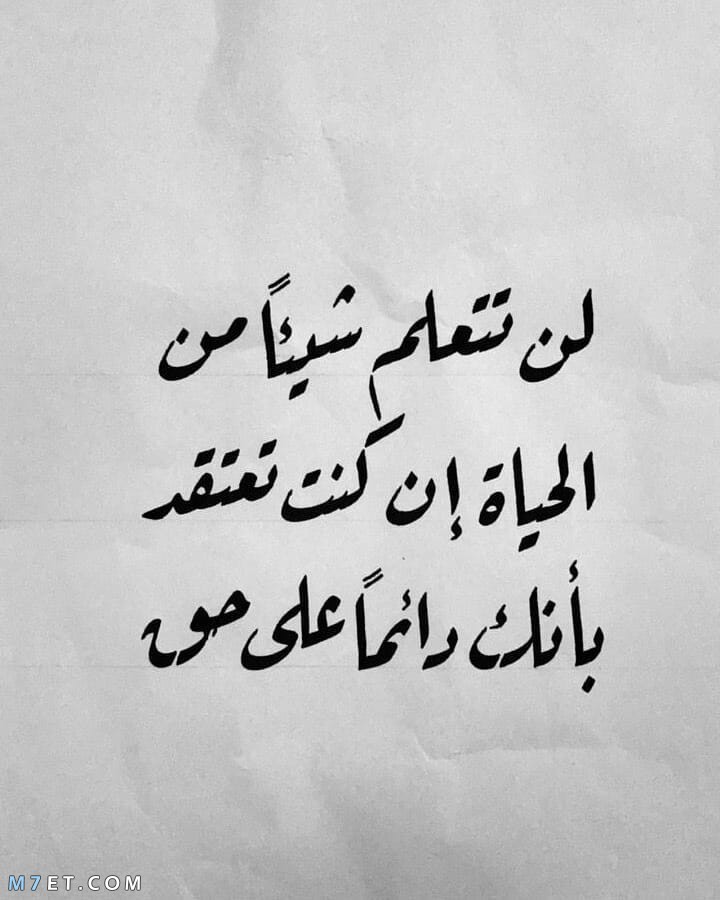 لن تتعلم شيئاً من
الحياة إن كنت تعتقد
بأنك دائماً على حق
M7ET.COM